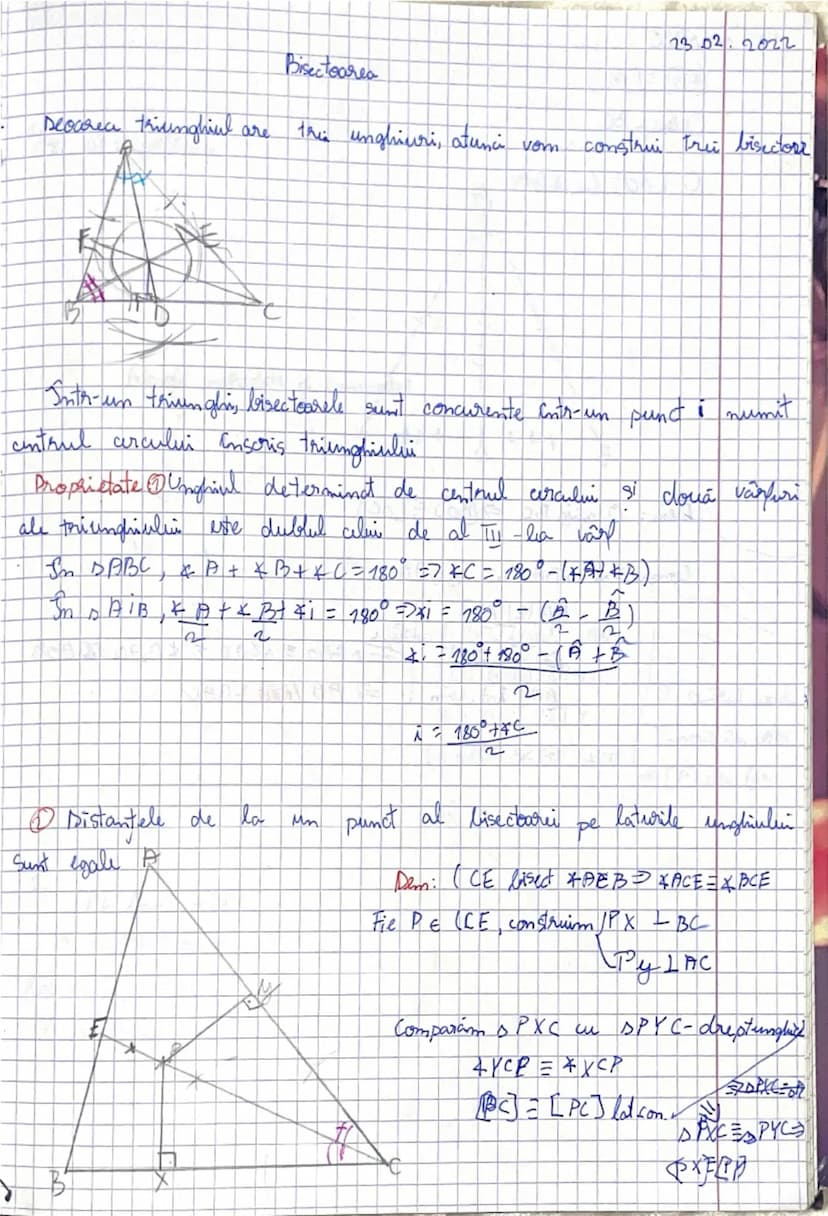 23.02.2022
Bisectoarea
Deoarea triunghiul are trei unghiuri, atunci vom construi trei bisectoar
A
x
F E
B D C
Într-un triunghi, bisectoarele sunt concurente într-un punct i numit
centrul cercului înscris triunghiului
Proprietate ① Unghiul determinat de centrul cercului și două vârfuri
ale triunghiului este dublul celui de al III-lea vârf
În △ABC, ∢A + ∢B + ∢C = 180° => ∢C = 180° - (∢A + ∢B)
În △AiB, ∢A/2 + ∢B/2 + ∢i = 180° => ∢i = 180° - (Â/2 - B̂/2)
∢i = 180° + 180° - (Â + B̂ / 2
i = 180° + ∢C / 2
① Distanțele de la un punct al bisectoarei pe laturile unghiului
sunt egale
A
Dem: (CE bisect ∢AEB => ∢ACE ≡ ∢BCE
Fie P ∈ (CE, construim PX ⊥ BC
Py ⊥ AC
y
E
P
Comparăm △PXC cu △PYC-dreptunghic
∢YCP ≡ ∢XCP
[PC] ≡ [PC] lat com.
△PXC ≡ △PYC =>
B X C